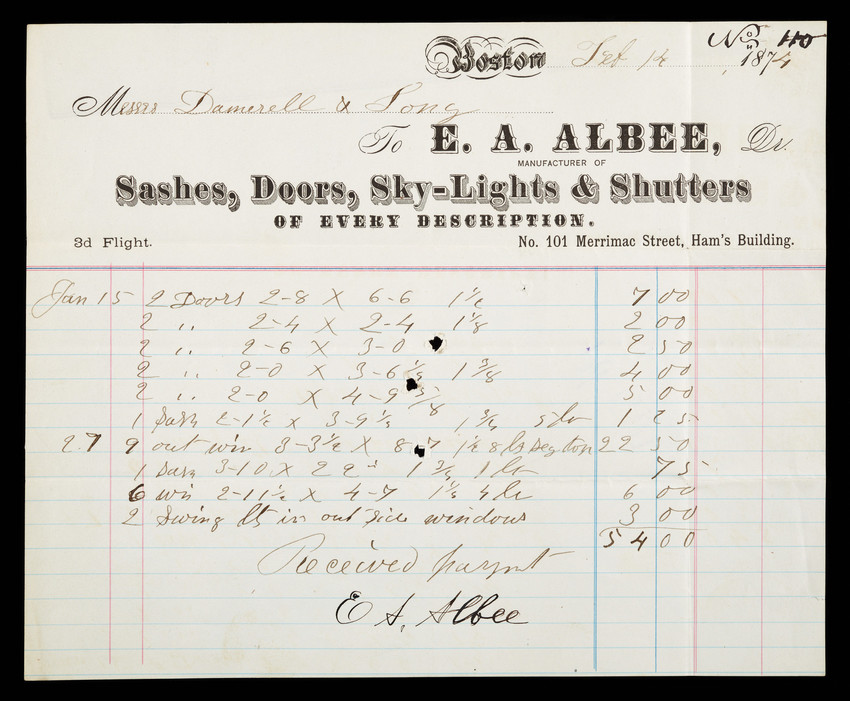 No. 110
Boston Feb 14, 1874
Messrs Damerell & Long
To E. A. ALBEE, Dr.
MANUFACTURER OF
Sashes, Doors, Sky-Lights & Shutters
OF EVERY DESCRIPTION.
3d Flight. No. 101 Merrimac Street, Ham's Building.
Jan 15 2 Doors 2-8 X 6-6 1 1/2 7 00
2 ,, 2-4 X 2-4 1 1/8 2 00
2 ,, 2-6 X 3-0 2 50
2 ,, 2-0 X 3-6 1 3/8 4 00
2 ,, 2-0 X 4-9 5 00
1 Sash 2-1 1/2 x 3-9 1/2 1 25
27 9 out win 3-3 1/2 X 8-7 1 1/2 8 lt Seg top 22 50
1 Sash 3-10 X 75
6 win 2-11 1/2 X 4-7 6 00
2 Swing lts in out side windows 3 00
54 00
Received paymt
E A, Albee